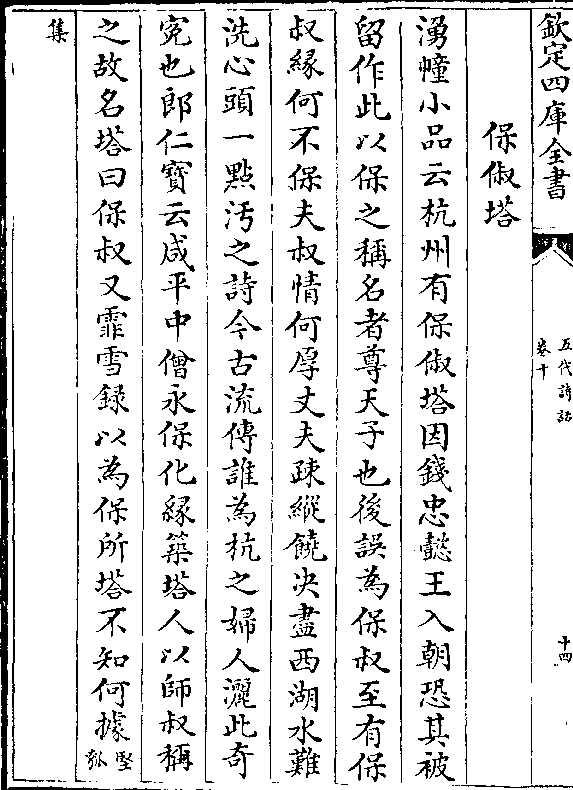 欽定四庫全書
五代詩話
卷十
十四
保俶塔
湧幢小品云杭州有保俶塔因錢忠懿王入朝恐其被
留作此以保之稱名者尊天子也後誤為保叔至有保
叔縁何不保夫叔情何厚丈夫疎縱饒决盡西湖水難
洗心頭一點汚之詩今古流傳誰為杭之婦人灑此奇
寃也郎仁寳云咸平中僧永保化縁築塔人以師叔稱
之故名塔曰保叔又霏雪録以為保所塔不知何據堅瓠
集